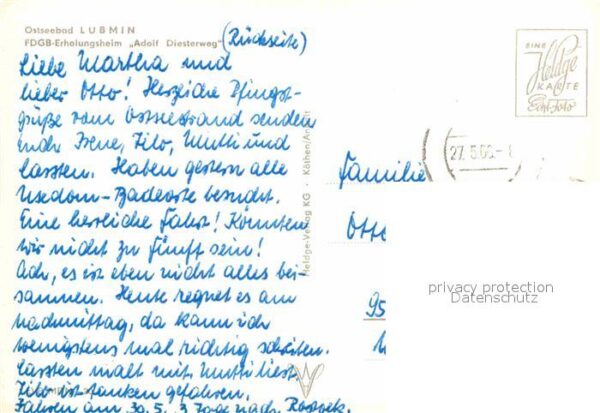 Ostseebad LUBMIN
FDGB-Erholungsheim „Adolf Diesterweg"
(Rückseite)
Liebe Martha und
lieber Otto! Herzliche Pfingst-
grüße vom Ostseestrand senden
Euch Irene, Tilo, Mutti und
Carsten. Haben gestern alle
Usedom-Badeorte besucht.
Eine herrliche Fahrt! Könnten
wir nicht zu fünft sein!
Ach, es ist eben nicht alles bei-
sammen. Heute regnet es am
Nachmittag, da kann ich
wenigstens mal richtig schreiben.
Carsten malt mit, Mutti liest,
Tilo ist tanken gefahren.
Fahren am 30.5. 3 Tage nach Rostock.
Heldge-Verlag KG · Köthen/Anhalt
EINE
Heldge
KARTE
Echt-Foto
27.5.
Familie
Otto
95
privacy protection
Datenschutz